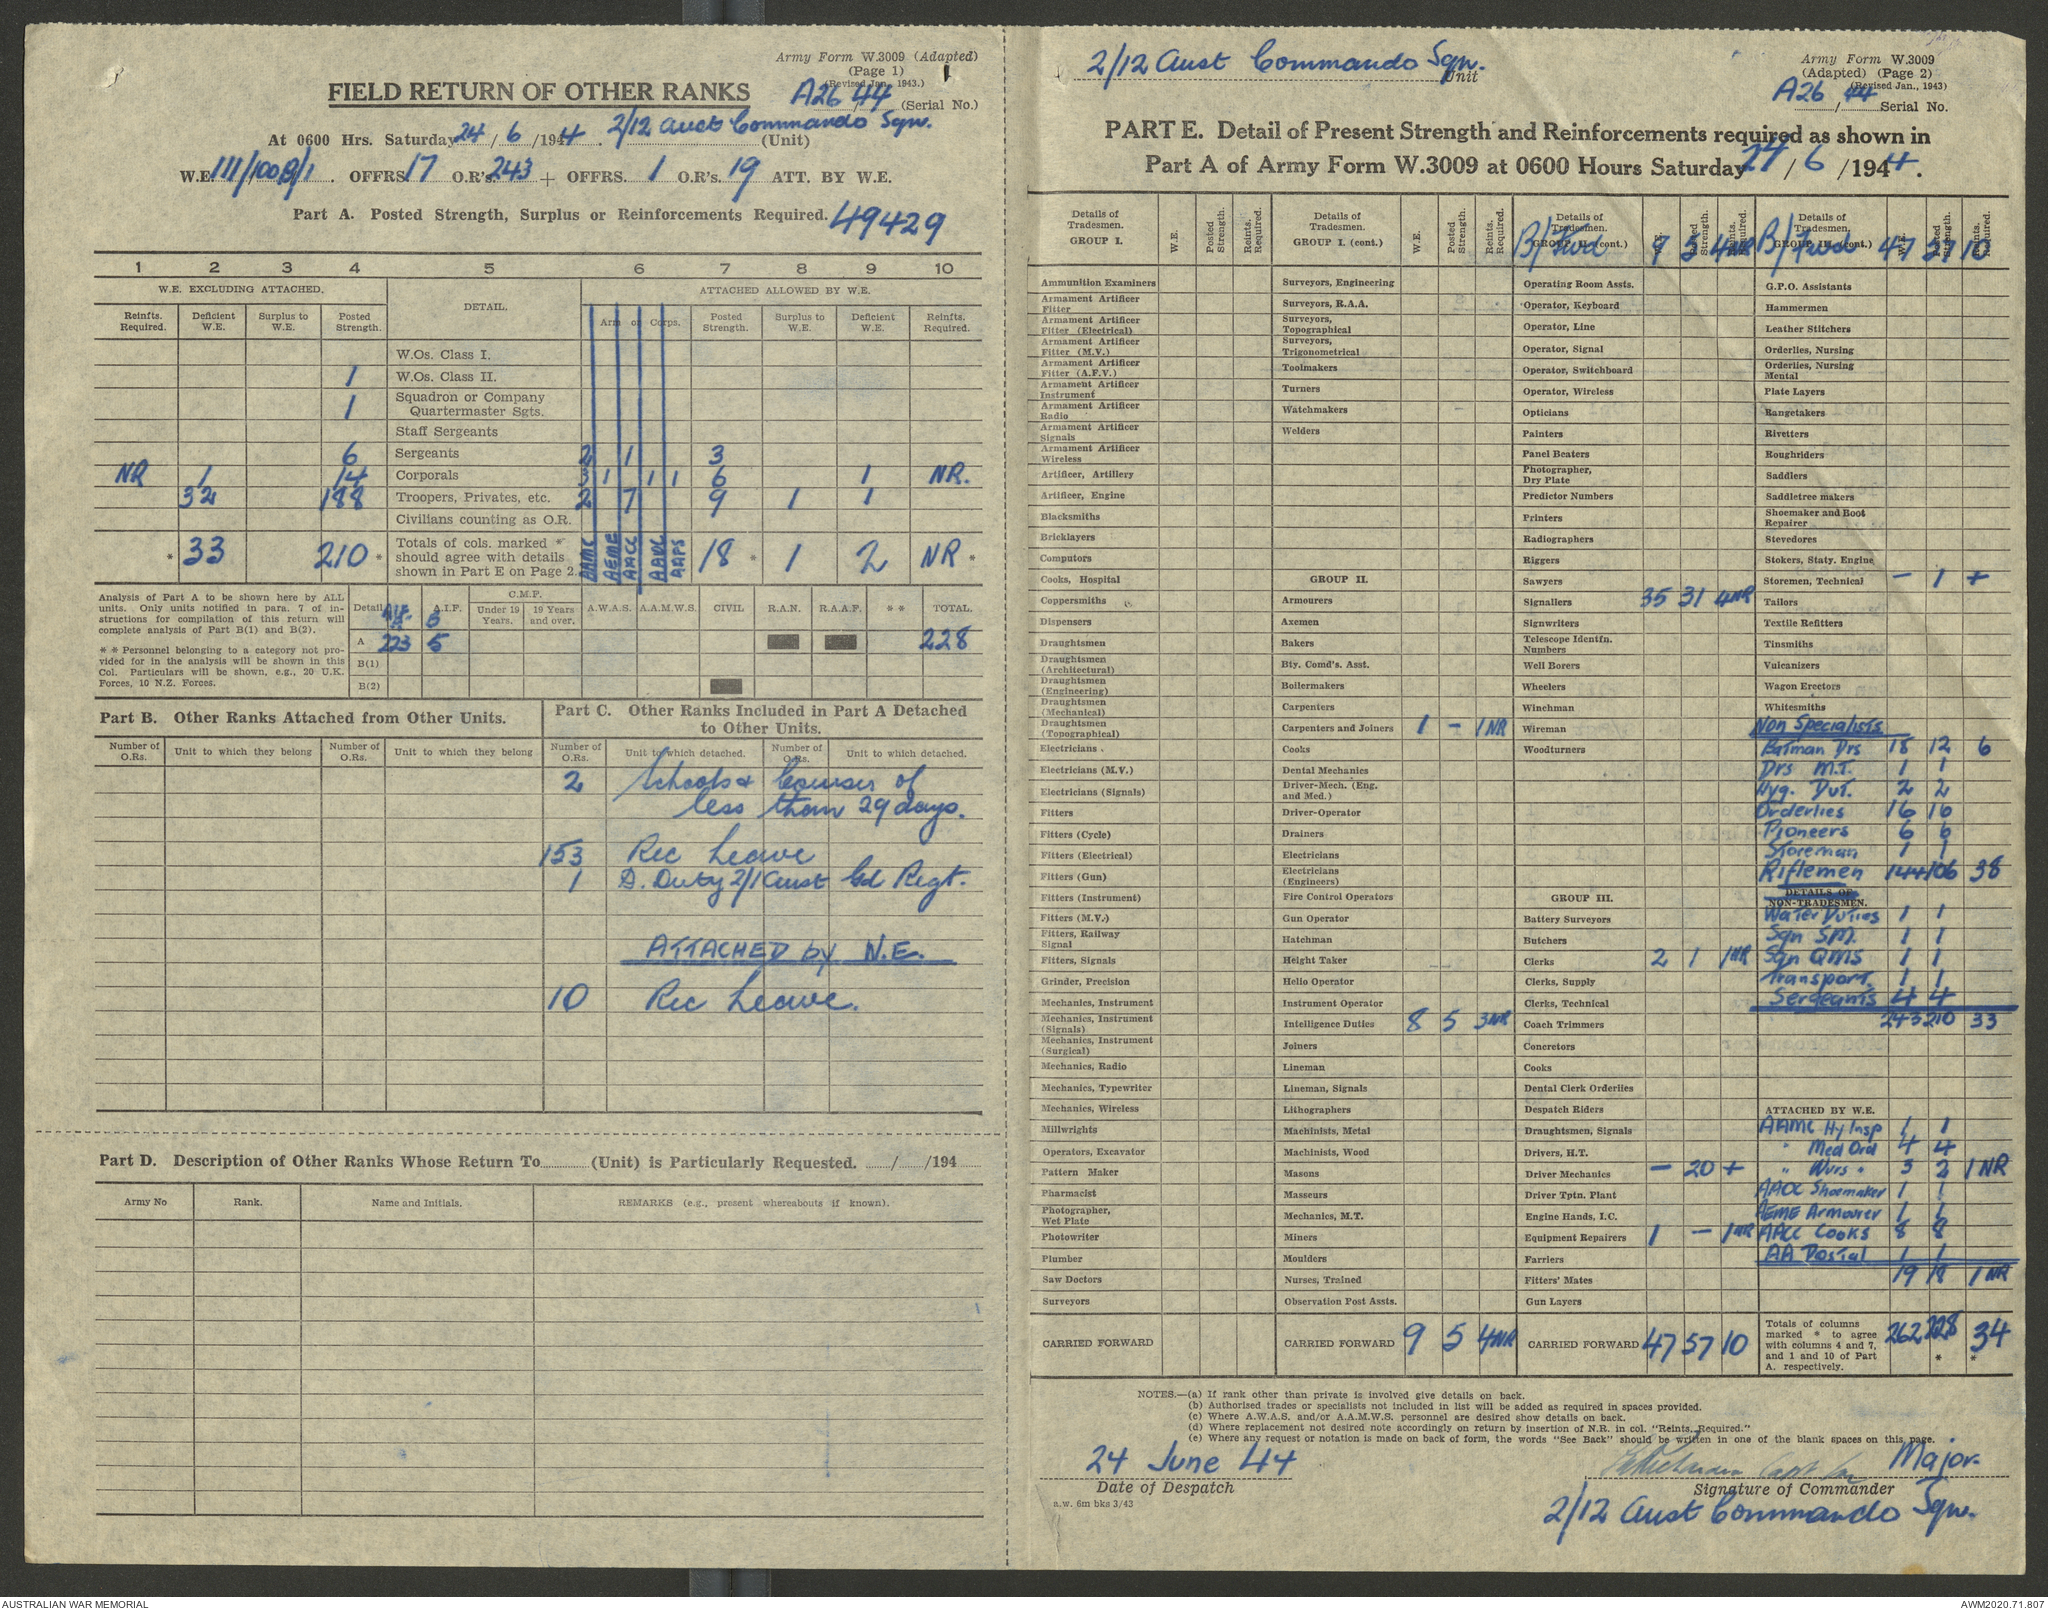 Army Form W.3009 (Adapted)
(Page 1)
(Revised Jan., 1943.)
FIELD RETURN OF OTHER RANKS
A26/44 (Serial No.)
At 0600 Hrs. Saturday 24/6/1944. 2/12 Aust Commando Sqn. (Unit)
W.E. 111/100B/1. OFFRS. 17 O.R's. 243 + OFFRS. 1 O.R's. 19 ATT. BY W.E.
Part A. Posted Strength, Surplus or Reinforcements Required. 49429
1 2 3 4 5 6 7 8 9 10
W.E. EXCLUDING ATTACHED. DETAIL. ATTACHED ALLOWED BY W.E.
Reinfts. Required. Deficient W.E. Surplus to W.E. Posted Strength. Arm or Corps. Posted Strength. Surplus to W.E. Deficient W.E. Reinfts. Required.
W.Os. Class I.
1 W.Os. Class II.
1 Squadron or Company Quartermaster Sgts.
Staff Sergeants
6 Sergeants 2 1 3
NR 1 14 Corporals 3 1 1 1 6 1 NR.
32 188 Troopers, Privates, etc. 2 7 9 1 1
Civilians counting as O.R.
* 33 210 * Totals of cols. marked * should agree with details shown in Part E on Page 2. AAMC AEME AACC AAOC AAPS 18 * 1 2 NR *
Analysis of Part A to be shown here by ALL units. Only units notified in para. 7 of instructions for compilation of this return will complete analysis of Part B(1) and B(2).
* * Personnel belonging to a category not provided for in the analysis will be shown in this Col. Particulars will be shown, e.g., 20 U.K. Forces, 10 N.Z. Forces.
Detail A.I.F. C.M.F. Under 19 Years. 19 Years and over. A.W.A.S. A.A.M.W.S. CIVIL R.A.N. R.A.A.F. * * TOTAL.
A 223 5 228
B(1)
B(2)
Part B. Other Ranks Attached from Other Units.
Number of O.Rs. Unit to which they belong Number of O.Rs. Unit to which they belong
Part C. Other Ranks Included in Part A Detached to Other Units.
Number of O.Rs. Unit to which detached. Number of O.Rs. Unit to which detached.
2 Schools & Courses of
less than 29 days.
153 Rec Leave
1 D. Duty 2/1 Aust Gd Regt.
ATTACHED by W.E.
10 Rec Leave.
Part D. Description of Other Ranks Whose Return To (Unit) is Particularly Requested. / /194
Army No Rank. Name and Initials. REMARKS (e.g., present whereabouts if known).
2/12 Aust Commando Sqn. Unit
Army Form W.3009
(Adapted) (Page 2)
(Revised Jan., 1943)
A26/44 Serial No.
PART E. Detail of Present Strength and Reinforcements required as shown in
Part A of Army Form W.3009 at 0600 Hours Saturday 24/6/1944.
Details of Tradesmen. GROUP I. W.E. Posted Strength. Reints. Required.
Ammunition Examiners
Armament Artificer Fitter
Armament Artificer Fitter (Electrical)
Armament Artificer Fitter (M.V.)
Armament Artificer Fitter (A.F.V.)
Armament Artificer Instrument
Armament Artificer Radio
Armament Artificer Signals
Armament Artificer Wireless
Artificer, Artillery
Artificer, Engine
Blacksmiths
Bricklayers
Computors
Cooks, Hospital
Coppersmiths
Dispensers
Draughtsmen
Draughtsmen (Architectural)
Draughtsmen (Engineering)
Draughtsmen (Mechanical)
Draughtsmen (Topographical)
Electricians
Electricians (M.V.)
Electricians (Signals)
Fitters
Fitters (Cycle)
Fitters (Electrical)
Fitters (Gun)
Fitters (Instrument)
Fitters (M.V.)
Fitters, Railway Signal
Fitters, Signals
Grinder, Precision
Mechanics, Instrument
Mechanics, Instrument (Signals)
Mechanics, Instrument (Surgical)
Mechanics, Radio
Mechanics, Typewriter
Mechanics, Wireless
Millwrights
Operators, Excavator
Pattern Maker
Pharmacist
Photographer, Wet Plate
Photowriter
Plumber
Saw Doctors
Surveyors
CARRIED FORWARD
Details of Tradesmen. GROUP I. (cont.) W.E. Posted Strength. Reints. Required.
Surveyors, Engineering
Surveyors, R.A.A.
Surveyors, Topographical
Surveyors, Trigonometrical
Toolmakers
Turners
Watchmakers
Welders
GROUP II.
Armourers
Axemen
Bakers
Bty. Comd's. Asst.
Boilermakers
Carpenters
Carpenters and Joiners 1 - 1 NR
Cooks
Dental Mechanics
Driver-Mech. (Eng. and Med.)
Driver-Operator
Drainers
Electricians
Electricians (Engineers)
Fire Control Operators
Gun Operator
Hatchman
Height Taker
Helio Operator
Instrument Operator
Intelligence Duties 8 5 3 NR
Joiners
Lineman
Lineman, Signals
Lithographers
Machinists, Metal
Machinists, Wood
Masons
Masseurs
Mechanics, M.T.
Miners
Moulders
Nurses, Trained
Observation Post Assts.
CARRIED FORWARD 9 5 4 NR
Details of Tradesmen. GROUP II. (cont.) W.E. Posted Strength. Reints. Required.
B/Fwd 9 5 4 NR
Operating Room Assts.
Operator, Keyboard
Operator, Line
Operator, Signal
Operator, Switchboard
Operator, Wireless
Opticians
Painters
Panel Beaters
Photographer, Dry Plate
Predictor Numbers
Printers
Radiographers
Riggers
Sawyers
Signallers 35 31 4 NR
Signwriters
Telescope Identfn. Numbers
Well Borers
Wheelers
Winchman
Wireman
Woodturners
GROUP III.
Battery Surveyors
Butchers
Clerks 2 1 1 NR
Clerks, Supply
Clerks, Technical
Coach Trimmers
Concretors
Cooks
Dental Clerk Orderlies
Despatch Riders
Draughtsmen, Signals
Drivers, H.T.
Driver Mechanics - 20 +
Driver Tptn. Plant
Engine Hands, I.C.
Equipment Repairers 1 - 1 NR
Farriers
Fitters' Mates
Gun Layers
CARRIED FORWARD 47 57 10
Details of Tradesmen. GROUP III. (cont.) W.E. Posted Strength. Reints. Required.
B/Fwd 47 57 10
G.P.O. Assistants
Hammermen
Leather Stitchers
Orderlies, Nursing
Orderlies, Nursing Mental
Plate Layers
Rangetakers
Rivetters
Roughriders
Saddlers
Saddletree makers
Shoemaker and Boot Repairer
Stevedores
Stokers, Staty. Engine
Storemen, Technical - 1 +
Tailors
Textile Refitters
Tinsmiths
Vulcanizers
Wagon Erectors
Whitesmiths
Non Specialists
Batman Drs 18 12 6
Drs M.T. 1 1
Hyg. Dut. 2 2
Orderlies 16 16
Pioneers 6 6
Storeman 1 1
Riflemen 144 106 38
DETAILS OF NON-TRADESMEN.
Water Duties 1 1
Sqn SM. 1 1
Sqn QMS 1 1
Transport. 1 1
Sergeants 4 4
243 210 33
ATTACHED BY W.E.
AAMC Hy Insp 1 1
" Med Ord 4 4
" Nurs " 3 2 1 NR
AAOC Shoemaker 1 1
AEME Armourer 1 1
AACC Cooks 8 8
AA Postal 1 1
19 18 1 NR
Totals of columns marked * to agree with columns 4 and 7, and 1 and 10 of Part A. respectively. 262 228 * 34 *
NOTES.—(a) If rank other than private is involved give details on back.
(b) Authorised trades or specialists not included in list will be added as required in spaces provided.
(c) Where A.W.A.S. and/or A.A.M.W.S. personnel are desired show details on back.
(d) Where replacement not desired note accordingly on return by insertion of N.R. in col. "Reints. Required."
(e) Where any request or notation is made on back of form, the words "See Back" should be written in one of the blank spaces on this page.
24 June 44
Date of Despatch
a.w. 6m bks 3/43
Major.
Signature of Commander
2/12 Aust Commando Sqn.
AUSTRALIAN WAR MEMORIAL
AWM2020.71.807